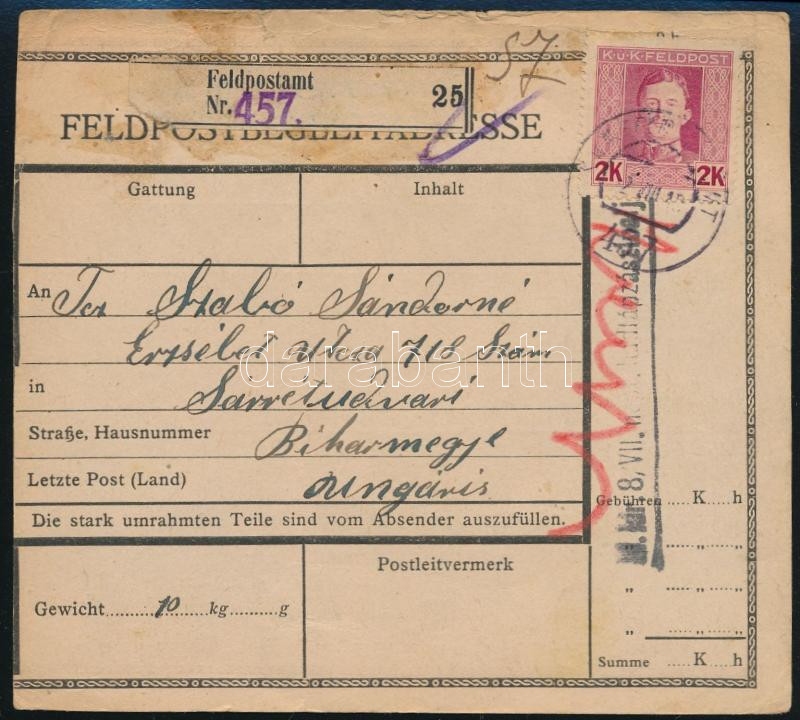 SZ
K.u.K.FELDPOST
2K 2K
Feldpostamt
Nr. 457. 25
FELDPOSTBEGLEITADRESSE
Gattung
Inhalt
An Szabó Sándorné
Erzsébet utca 716 szám
in Sárrétudvari
Straße, Hausnummer Biharmegye
Letzte Post (Land) Ungáris
Die stark umrahmten Teile sind vom Absender auszufüllen.
Gewicht 10 kg g
Postleitvermerk
Gebühren K h
" " "
" " "
" " "
Summe K h
darabanth